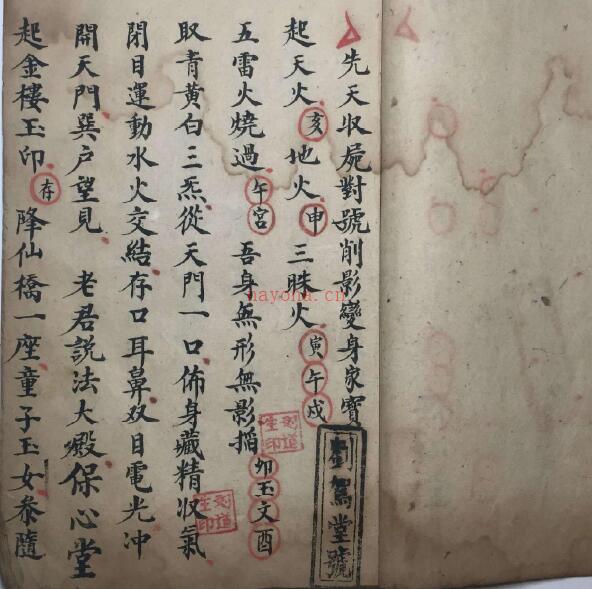 先天收屍對號削影變身家寶
起天火亥地火申三昧火寅午戌
五雷火燒過午宮 吾身無形無影掐卯玉文酉
取青黃白三炁從天門一口佈身藏精收氣
閉目運動水火交結存口耳鼻双目電光冲
開天門巽戶望見 老君說法大殿保心堂
起金樓玉印存降仙橋一座童子玉女叅隨
劉駕堂號
nayona.cn